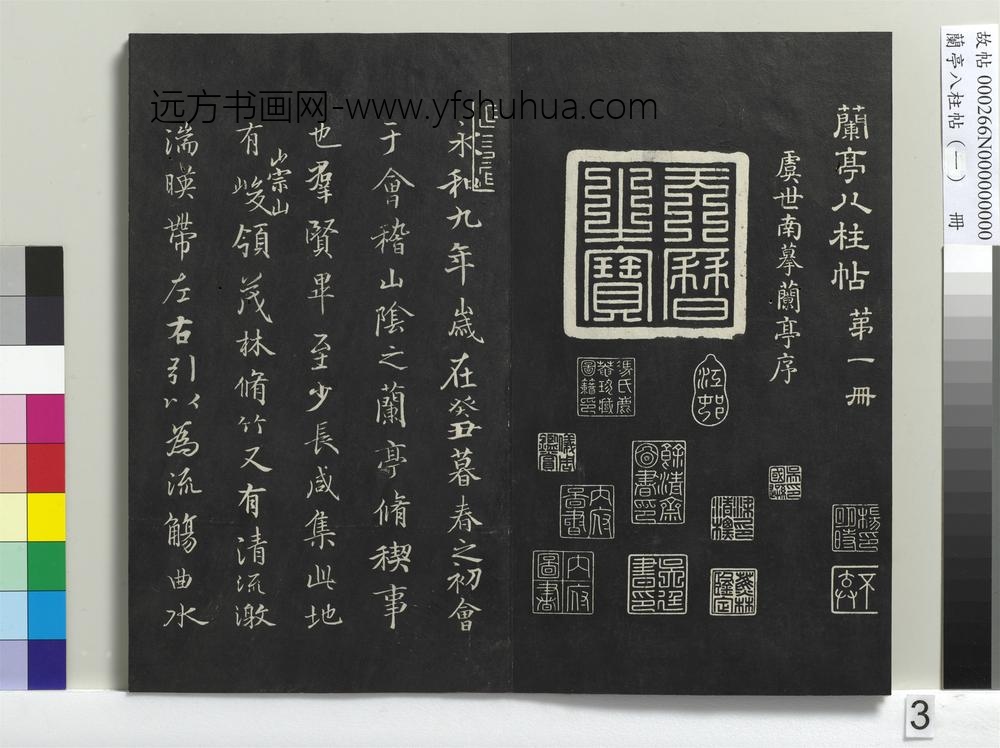 故帖 000266N000000000
蘭亭八柱帖(一) 冊
远方书画网-www.yfshuhua.com
蘭亭八柱帖 第一冊
虞世南摹蘭亭序
天曆之寶
內府圖書
內府圖書
永和九年歲在癸丑暮春之初會
于會稽山陰之蘭亭脩稧事
也羣賢畢至少長咸集此地
有崇山峻領茂林脩竹又有清流激
湍暎帶左右引以為流觴曲水
3